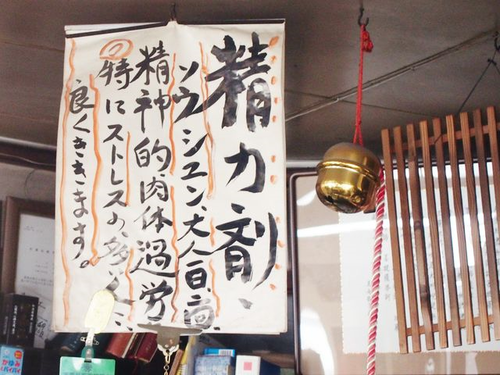 精力剤、
ソウシュン、大人日商
精神的肉体過労
の特にストレスの多い人に
良くききます。